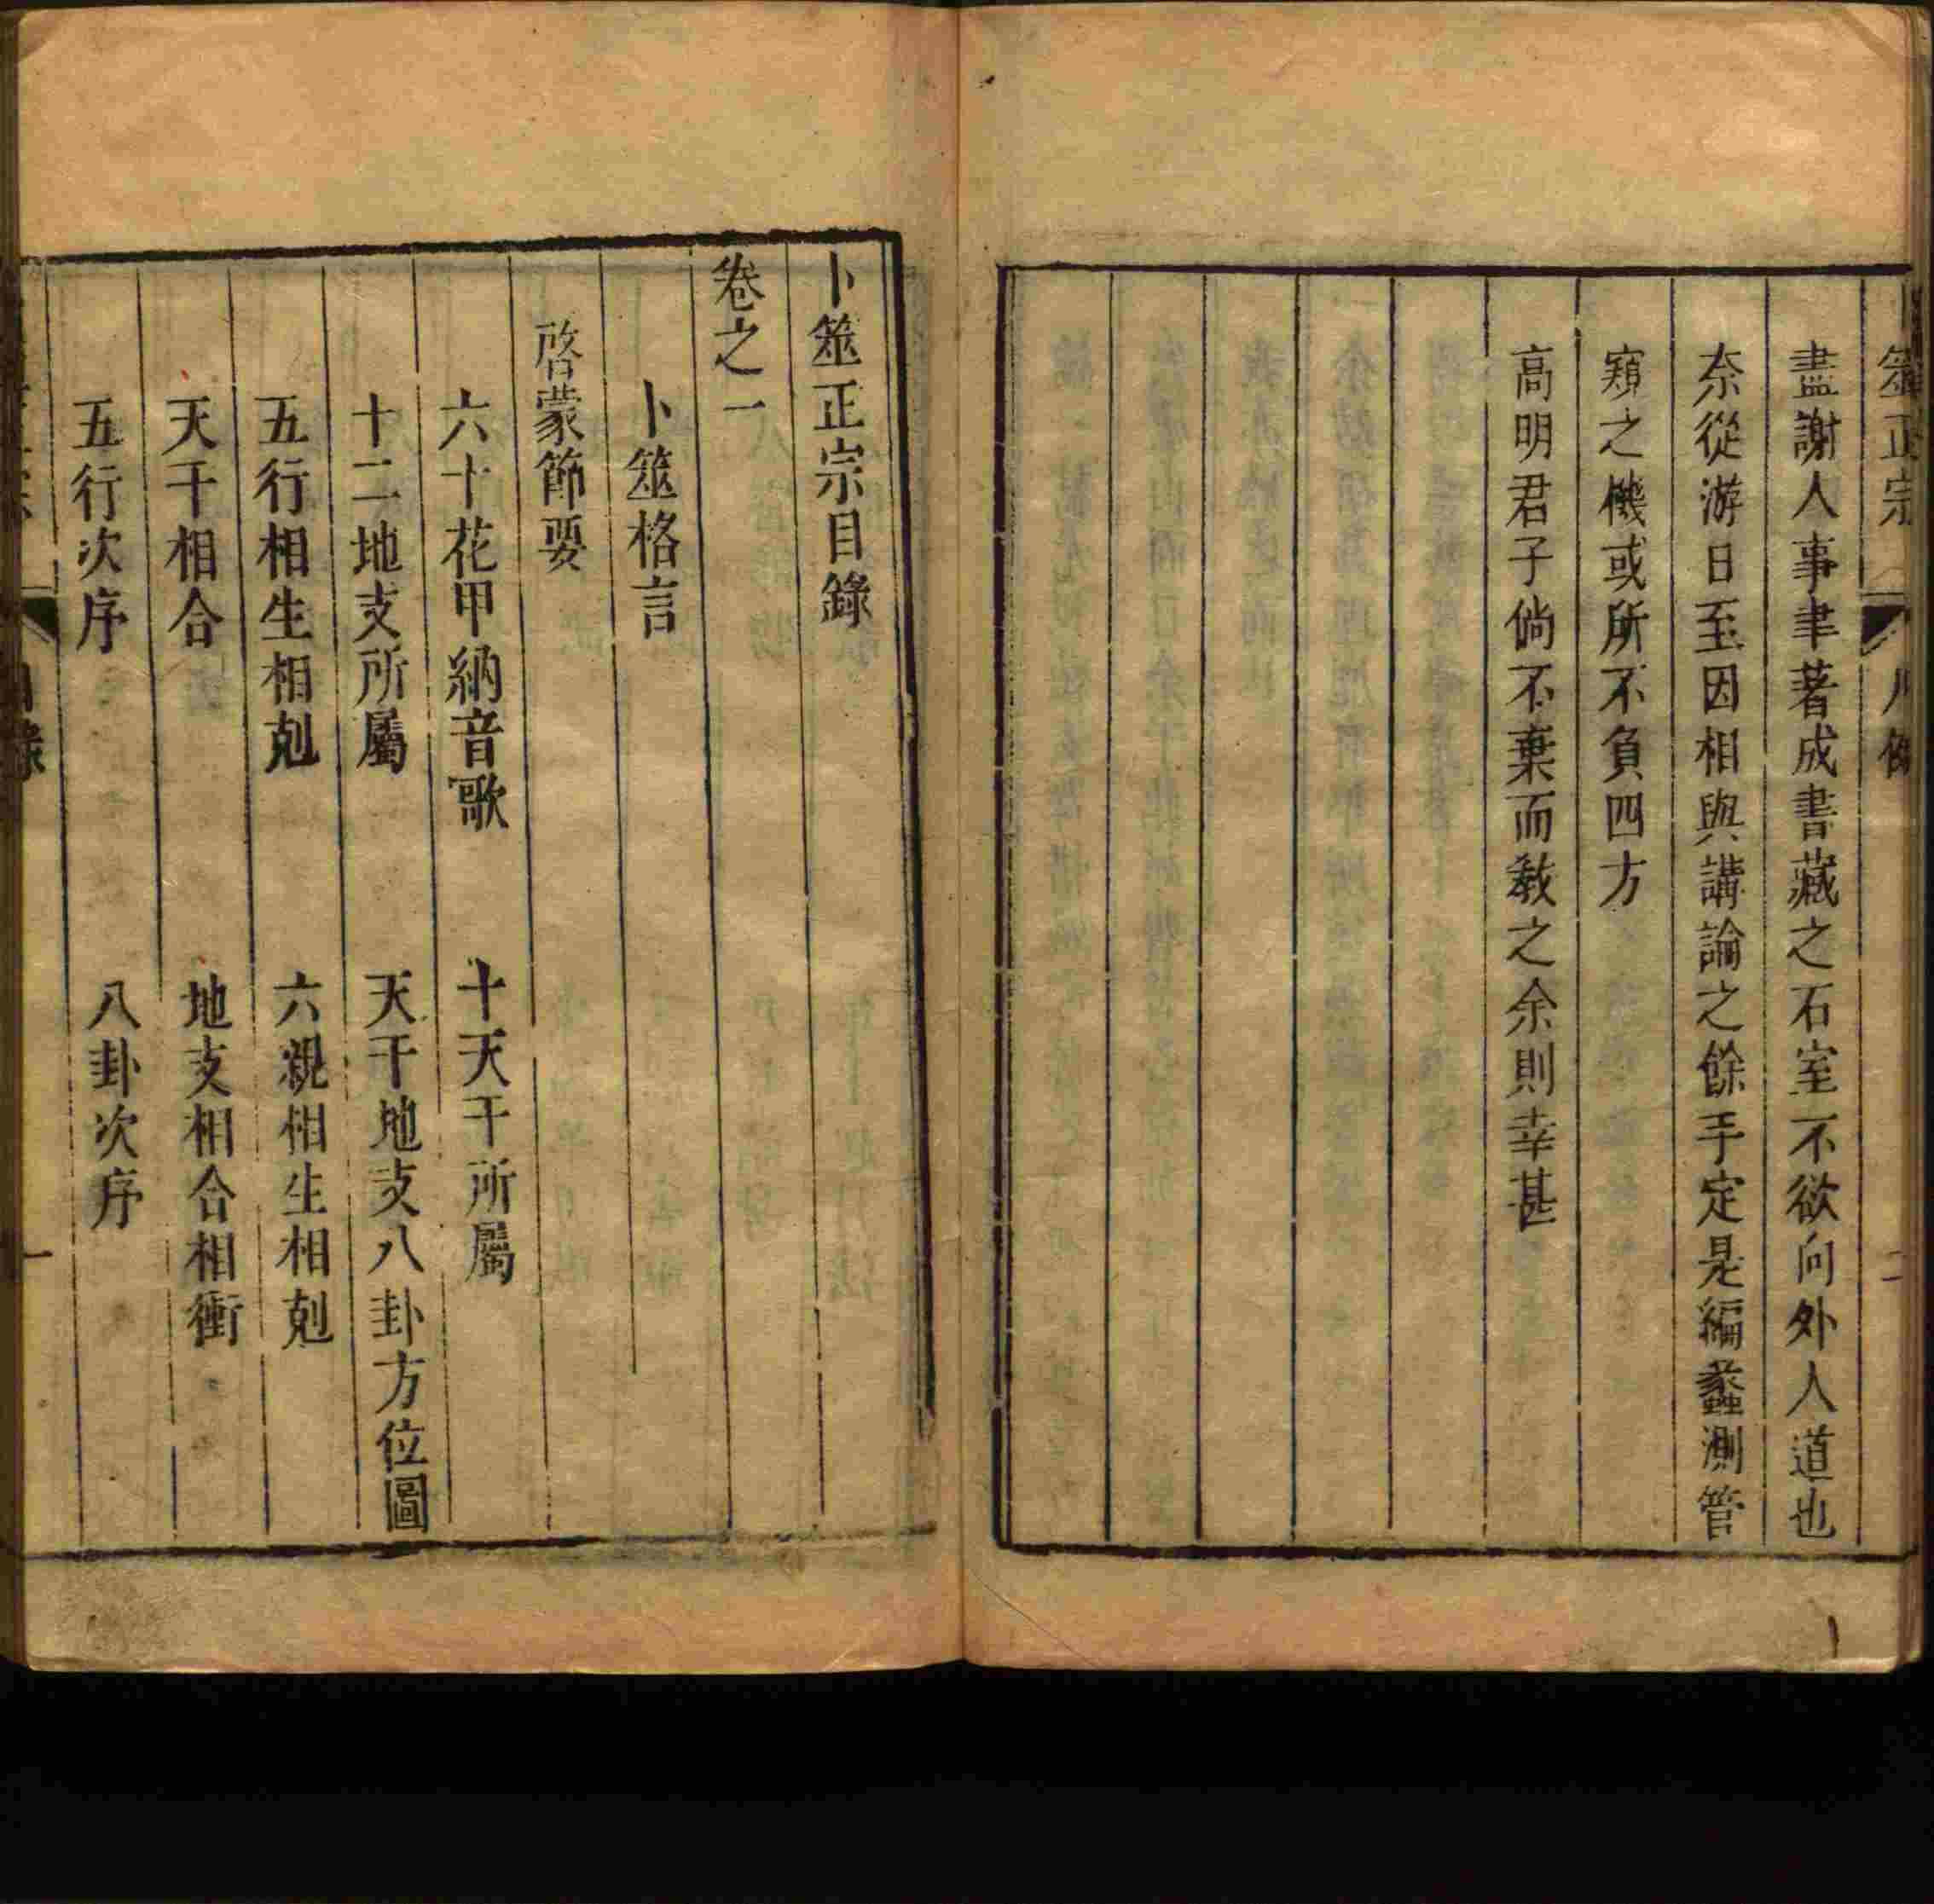 筮正宗 凡例 二
盡謝人事聿著成書藏之石室不欲向外人道也
奈從游日至因相與講論之餘手定是編蠡測管
窺之機或所不負四方
高明君子倘不棄而教之余則幸甚
卜筮正宗目錄
卷之一
卜筮格言
啓蒙節要
六十花甲納音歌 十天干所屬
十二地支所屬 天干地支八卦方位圖
五行相生相剋 六親相生相剋
天干相合 地支相合相衝
五行次序 八卦次序
目錄 一